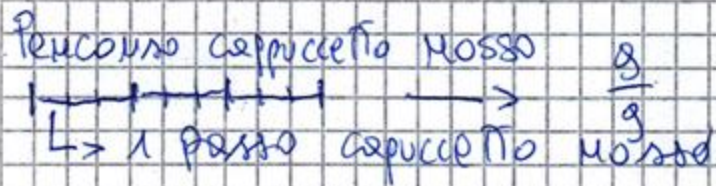 Percorso cappuccetto rosso
9/9
L> 1 passo capuccetto rosso